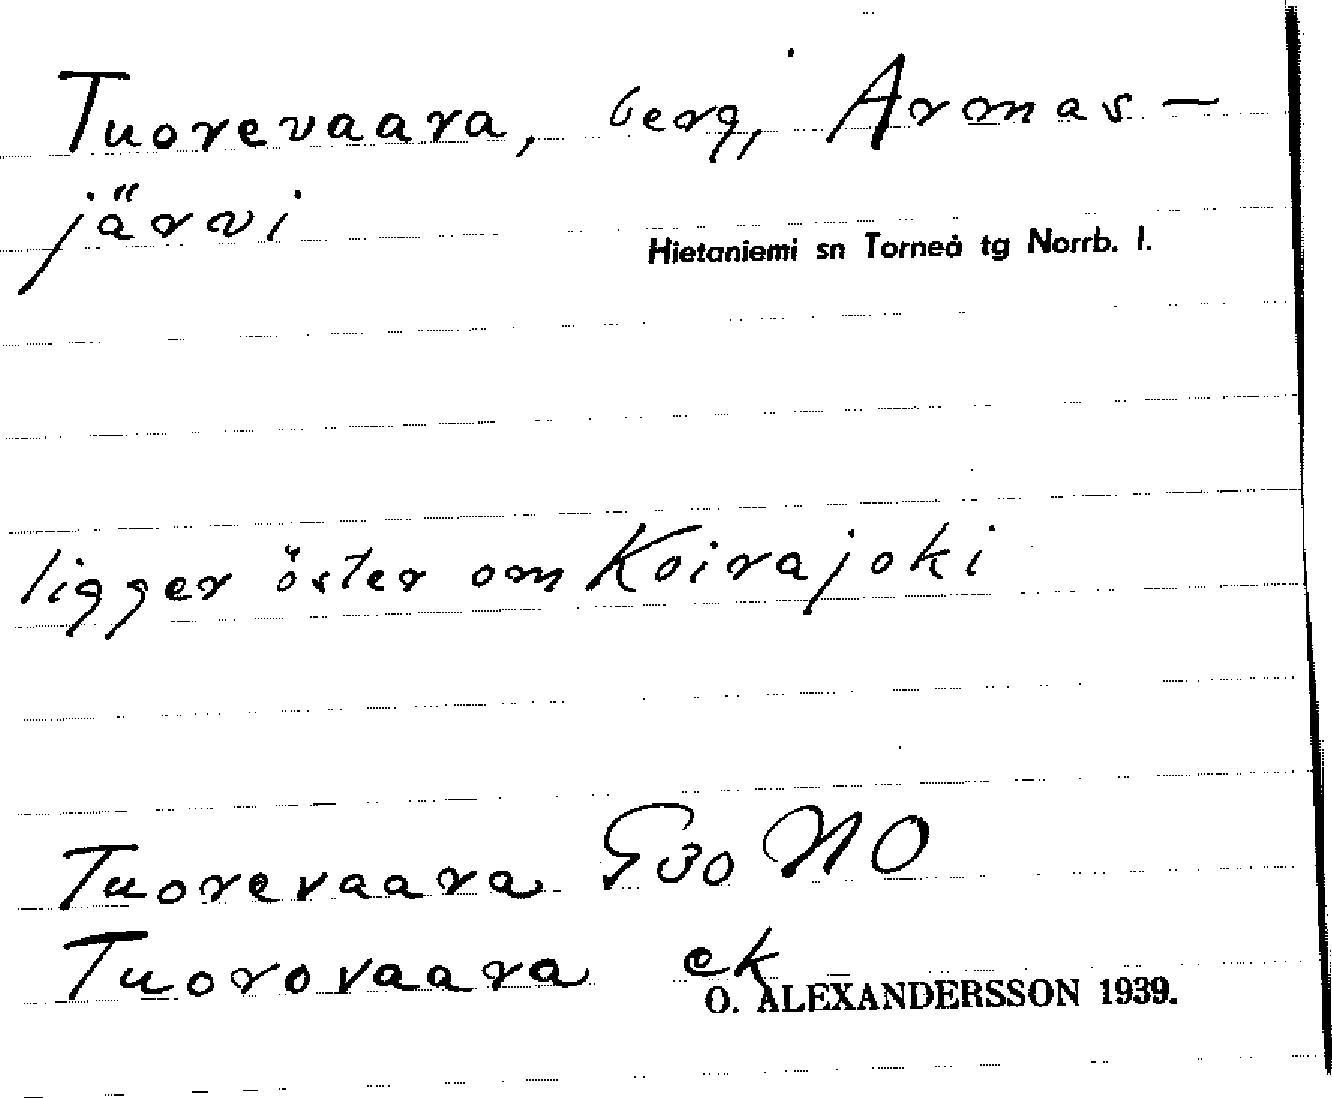 Tuorevaara, berg, Armas-
järvi
Hietaniemi sn Torneå tg Norrb. l.
ligger öster om Koirajoki
Tuorevaara G30 NO
Tuorovaara ek
O. ALEXANDERSSON 1939.